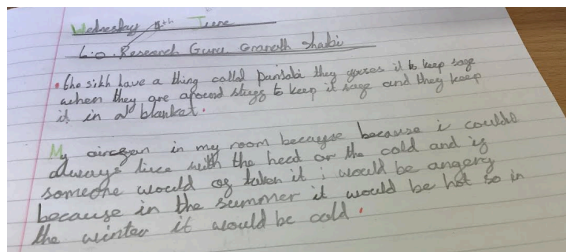 Wednesday 8th June
L.o Research Guru Granath Shaibi
• the sikh have a thing called punjabi they it to keep sage
when they are around stugg to keep it sage and they keep
it in a blanket.
My aircgan in my room becayse because i couldð
always live with the head or the cold and ig
someone would og taken it i would be angery
because in the summer it would be hot so in
the winter it would be cold.